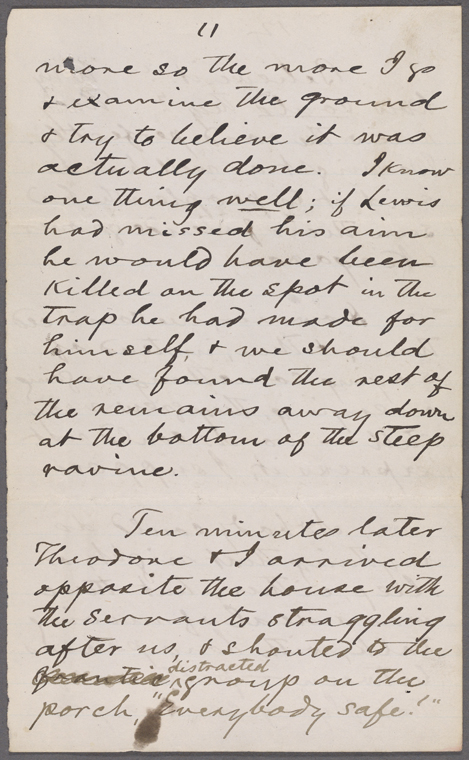 11
more so the more I go
& examine the ground
& try to believe it was
actually done. I know
one thing well; if Lewis
had missed his aim
he would have been
killed on the spot in the
trap he had made for
himself, & we should
have found the rest of
the remains away down
at the bottom of the steep
ravine.
Ten minutes later
Theodore & I arrived
opposite the house with
the servants straggling
after us, & shouted to the
frantic distracted group on the
porch, "Everybody safe!"